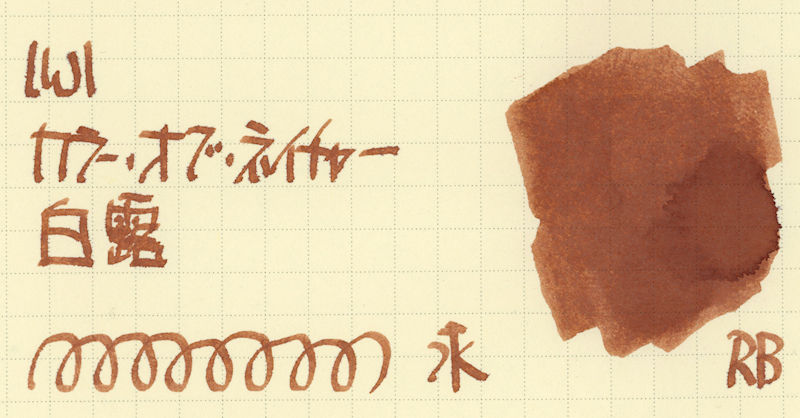 IWI
カラー・オブ・ネイチャー
白露
永 RB